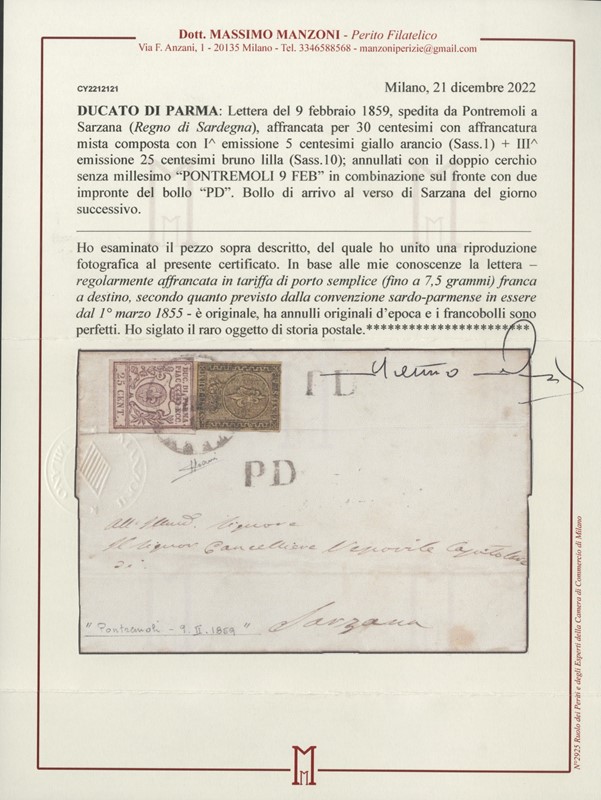 Dott. MASSIMO MANZONI - Perito Filatelico
Via F. Anzani, 1 - 20135 Milano - Tel. 3346588568 - manzoniperizie@gmail.com
CY2212121
Milano, 21 dicembre 2022
DUCATO DI PARMA: Lettera del 9 febbraio 1859, spedita da Pontremoli a
Sarzana (Regno di Sardegna), affrancata per 30 centesimi con affrancatura
mista composta con I^ emissione 5 centesimi giallo arancio (Sass.1) + III^
emissione 25 centesimi bruno lilla (Sass.10); annullati con il doppio cerchio
senza millesimo “PONTREMOLI 9 FEB” in combinazione sul fronte con due
impronte del bollo “PD”. Bollo di arrivo al verso di Sarzana del giorno
successivo.
Ho esaminato il pezzo sopra descritto, del quale ho unito una riproduzione
fotografica al presente certificato. In base alle mie conoscenze la lettera –
regolarmente affrancata in tariffa di porto semplice (fino a 7,5 grammi) franca
a destino, secondo quanto previsto dalla convenzione sardo-parmense in essere
dal 1° marzo 1855 - è originale, ha annulli originali d'epoca e i francobolli sono
perfetti. Ho siglato il raro oggetto di storia postale.***********************
DUC. DI PARMA
PIAC. ECC.
25 CENT.
PD
PD
Il Signor Cancelliere Vescovile Capitolare
Sarzana
" Pontremoli - 9. II. 1859 "
N°2925 Ruolo dei Periti e degli Esperti della Camera di Commercio di Milano
M